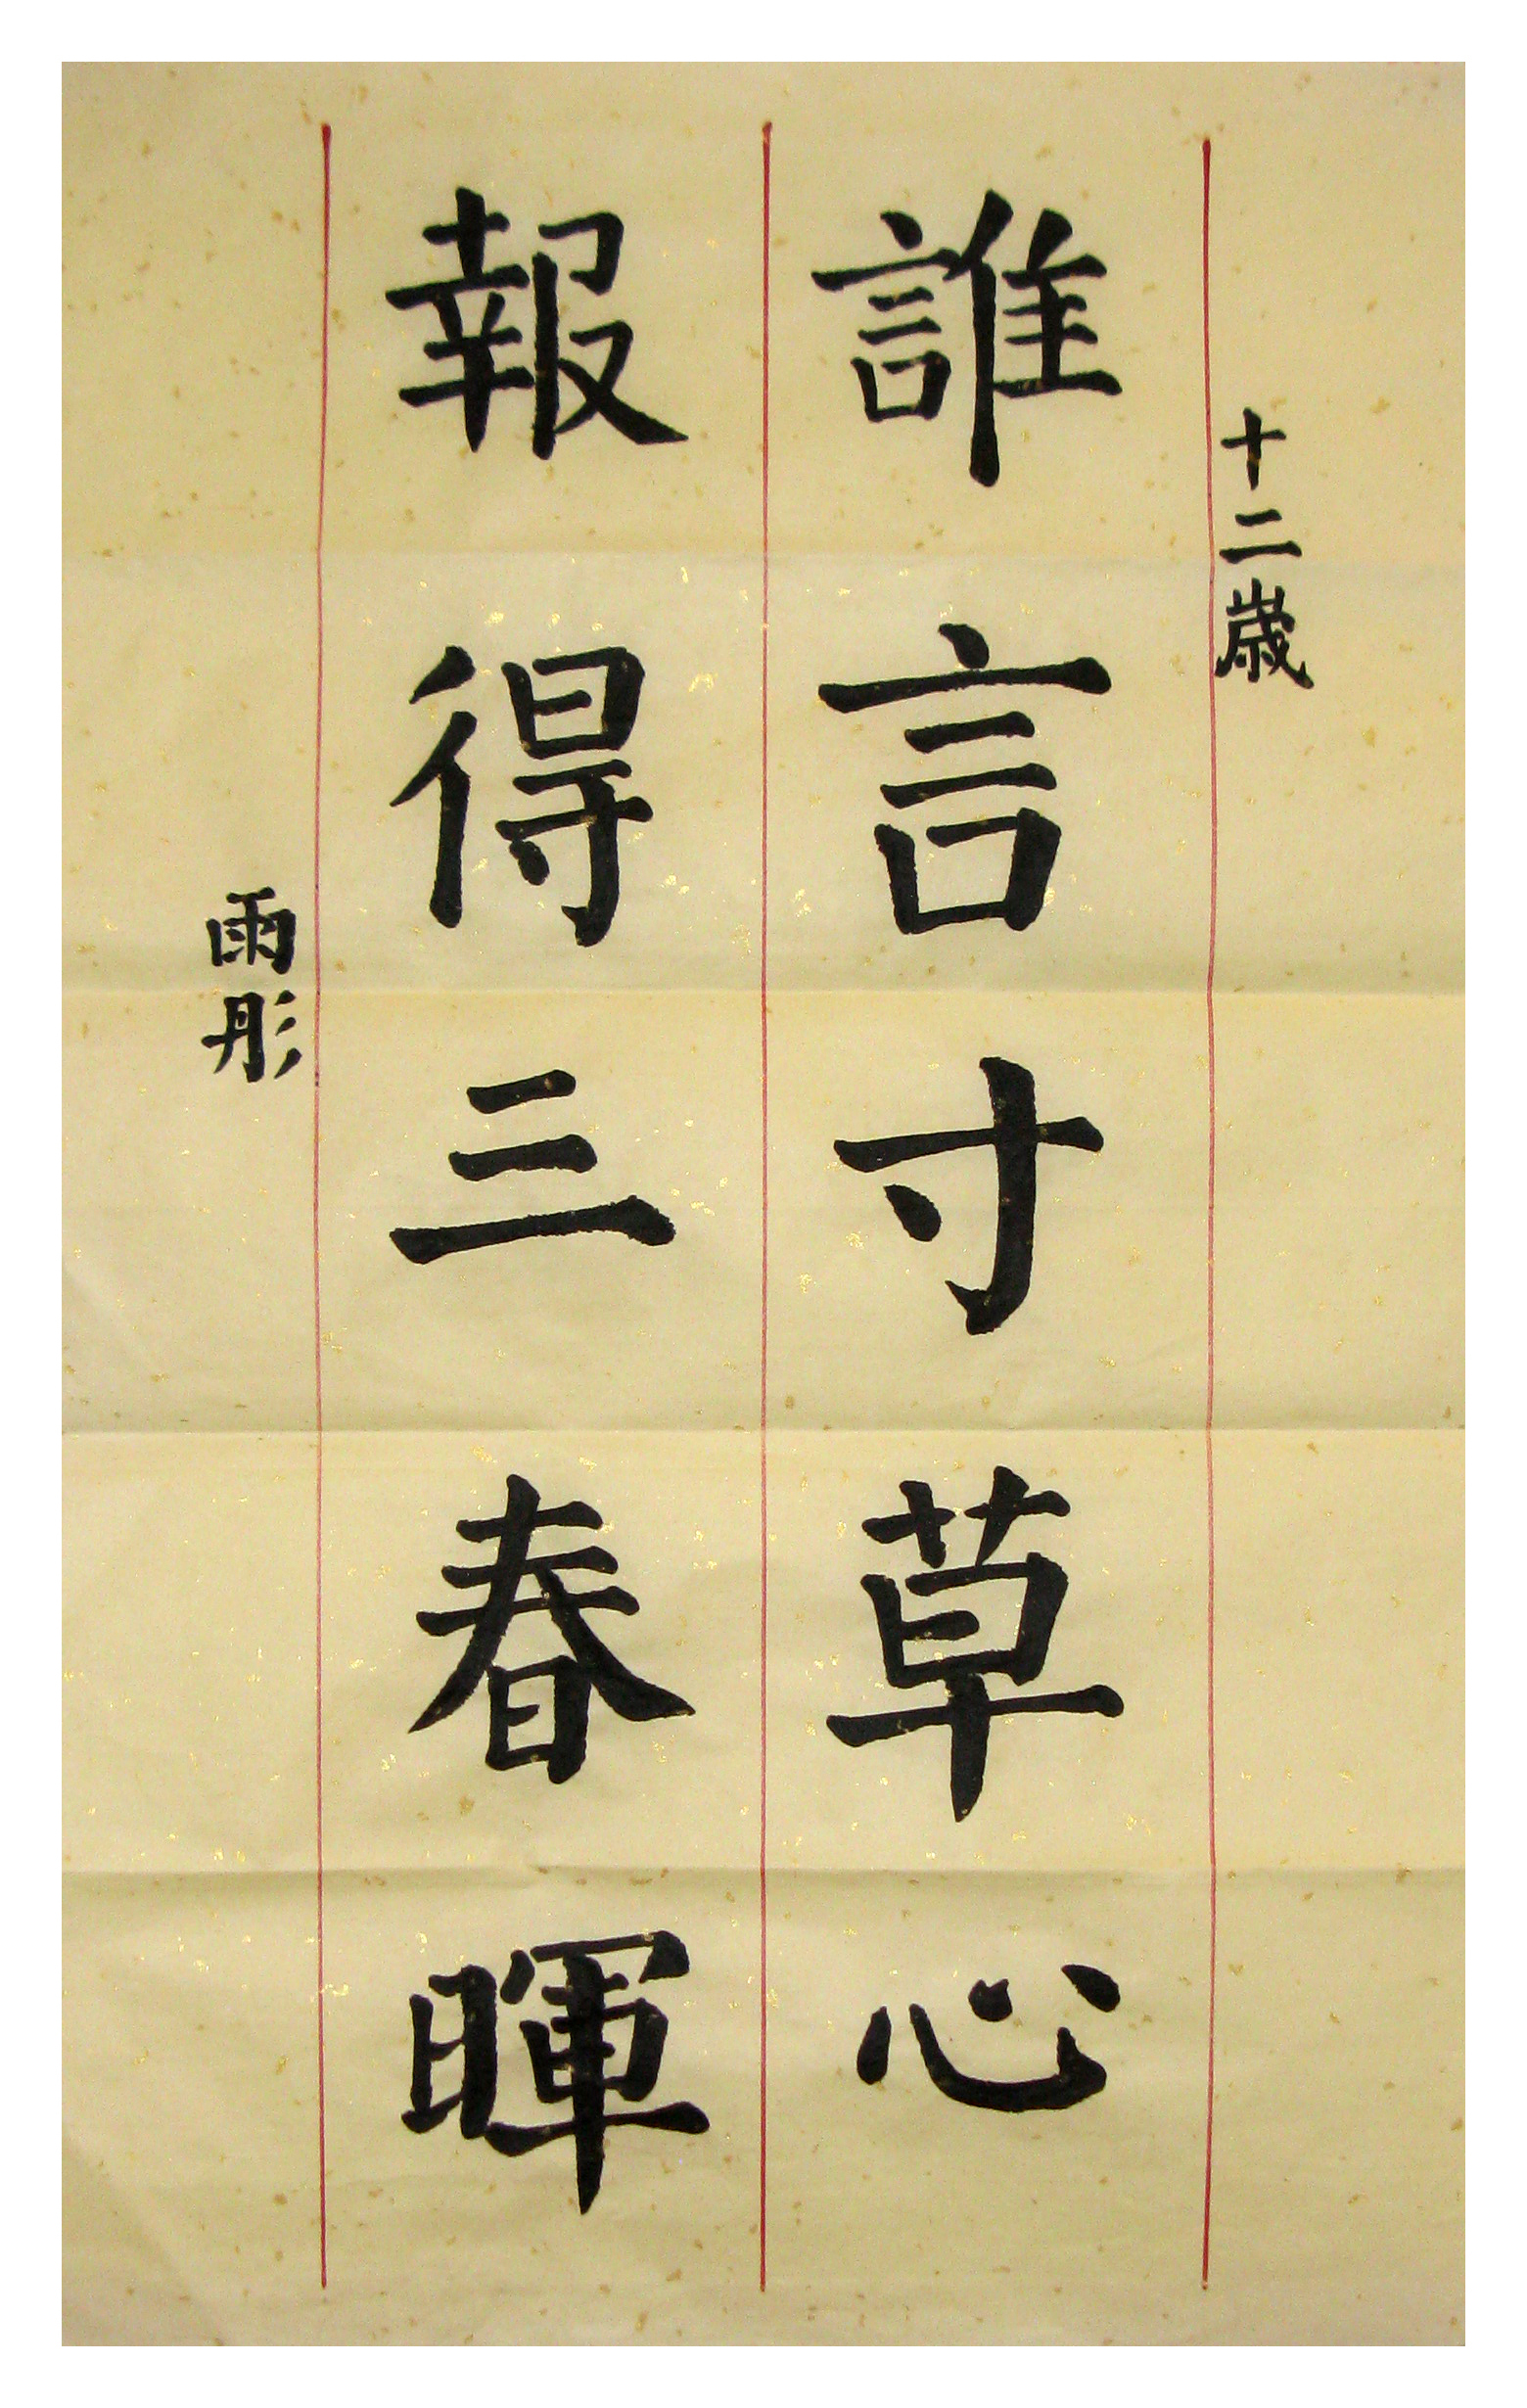 十二歲
誰言寸草心
報得三春暉
雨彤